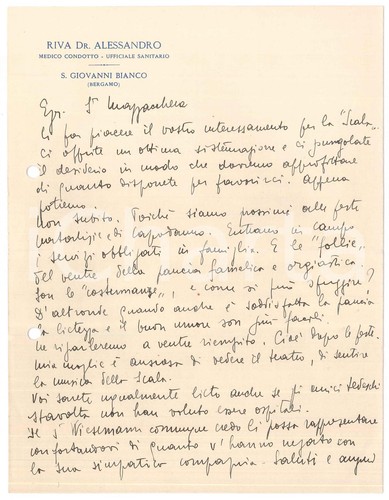 RIVA DR. ALESSANDRO
MEDICO CONDOTTO - UFFICIALE SANITARIO
S. GIOVANNI BIANCO
(BERGAMO)
Egr. Sr
Ci fa piacere il vostro interessamento per la "Scala".
Ci offrite un ottima sistemazione e ci pungolate
il desiderio in modo che daremo approfittare
di quanto disponete per favorirci. Appena
potremo.
Non subito. Poichè siamo prossimi alle feste
natalizie e di capodanno. Entrano in campo
i servizi obbligati in famiglia. E le "follie"
del ventre della pancia famelica e orgiastica.
Son le "costumanze", e come si può sfuggire?
D'altronde quando anche è soddisfatta la pancia
la lietezza e il buon umore son più facili.
Ne riparleremo a ventre riempito. Cioè dopo le feste.
Mia moglie è ansiosa di vedere il teatro, di sentire
la musica della Scala.
Voi sarete ugualmente lieto anche se gli amici tedeschi
stavolta non han voluto essere ospitali.
Se Sr Wiesemann comunque credo li possa rappresentare
confortandovi di quanto v'hanno negato con
la sua simpatica compagnia. Saluti e auguri